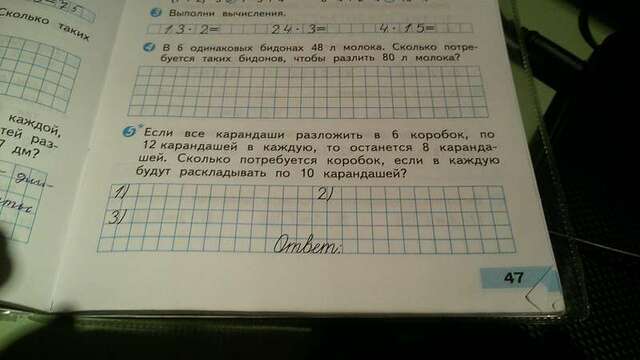 Сколько таких
3 Выполни вычисления.
13·2= 24·3= 4·15=
4 В 6 одинаковых бидонах 48 л молока. Сколько потре-
буется таких бидонов, чтобы разлить 80 л молока?
каждой,
7 дм?
5* Если все карандаши разложить в 6 коробок, по
12 карандашей в каждую, то останется 8 каранда-
шей. Сколько потребуется коробок, если в каждую
будут раскладывать по 10 карандашей?
1) 2)
3)
Ответ:
47